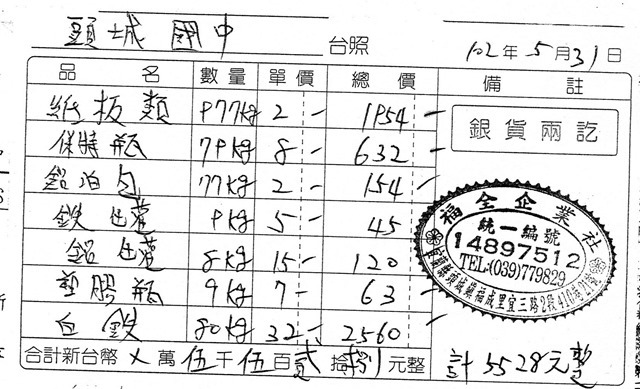 頭城 國中 台照 102年5月31日
品名 數量 單價 總價 備註
紙板類 977kg 2- 1954-
保特瓶 79kg 8- 632-
鋁泊包 77kg 2- 154-
鉄罐 9kg 5- 45-
鋁罐 8kg 15- 120-
塑膠瓶 9kg 7- 63-
白鉄 80kg 32- 2560-
合計新台幣 X 萬 伍 千 伍 百 貳 拾 捌 元整
計 5528元整
銀貨兩訖
福全企業社
統一編號
14897512
TEL:(039)779829
頭城鎮福成里宜三路2段